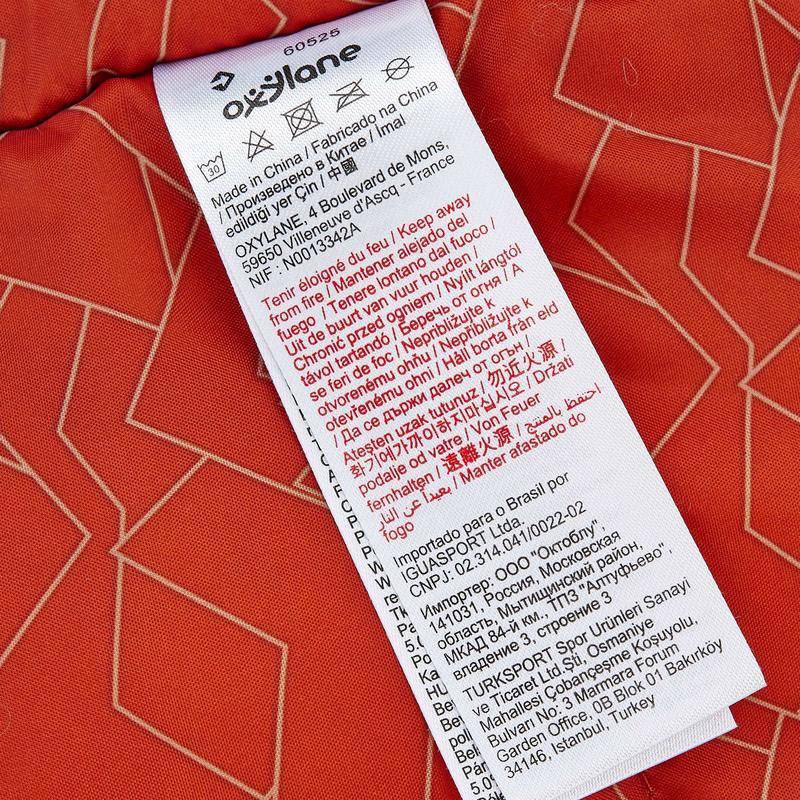 60525
oxylane
30
Made in China / Fabricado na China
/ Произведено в Китае / İmal
edildiği yer Çin / 中國
OXYLANE, 4 Boulevard de Mons,
59650 Villeneuve d'Ascq - France
NIF : N0013342A
Tenir éloigné du feu / Keep away
from fire / Mantener alejado del
fuego / Tenere lontano dal fuoco /
Uit de buurt van vuur houden /
Chronić przed ogniem / Nyílt lángtól
távol tartandó / Беречь от огня / A
se feri de foc / Nepribližujte k
otvorenému ohňu / Nepřibližujte k
otevřenému ohni / Håll borta från eld
/ Да се държи далеч от огън /
Ateşten uzak tutunuz / 勿近火源 /
화기에가까이하지마십시오 / Držati
podalje od vatre / Von Feuer
fernhalten / 遠離火源 / احتفظ بالمنتج
بعيدا عن النار / Manter afastado do
fogo
Importado para o Brasil por
IGUASPORT Ltda.
CNPJ: 02.314.041/0022-02
Импортер: ООО "Октоблу",
141031, Россия, Московская
область, Мытищинский район,
МКАД 84-й км., ТПЗ "Алтуфьево",
владение 3, строение 3
TURKSPORT Spor Urünleri Sanayi
ve Ticaret Ltd.Şti, Osmaniye
Mahallesi Çobançeşme Koşuyolu,
Bulvarı No: 3 Marmara Forum
Garden Office, 0B Blok 01 Bakırköy
34146, Istanbul, Turkey